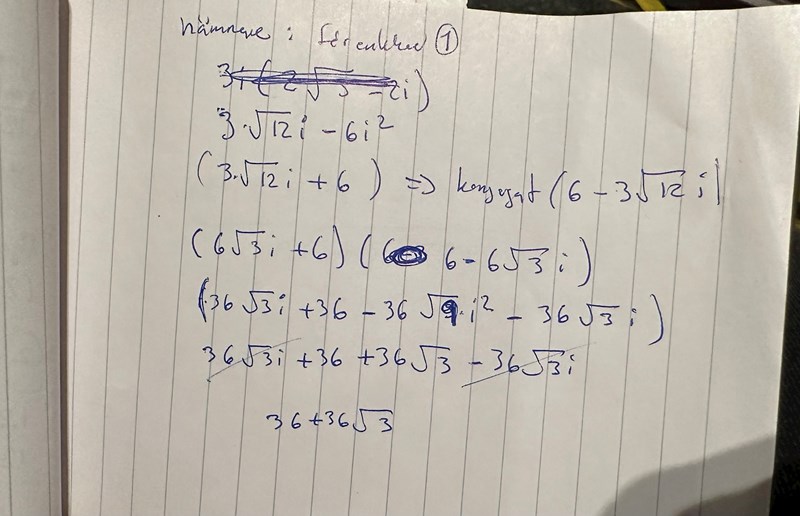 nämnare : förenklar ①
3i(2√3 - 2i)
3·√12 i - 6i²
(3·√12 i + 6) => konjugat (6 - 3√12 i)
(6√3 i + 6) (6 6 - 6√3 i)
(36√3 i + 36 - 36√9·i² - 36√3 i)
36√3 i + 36 + 36√3 - 36√3 i
36 + 36√3